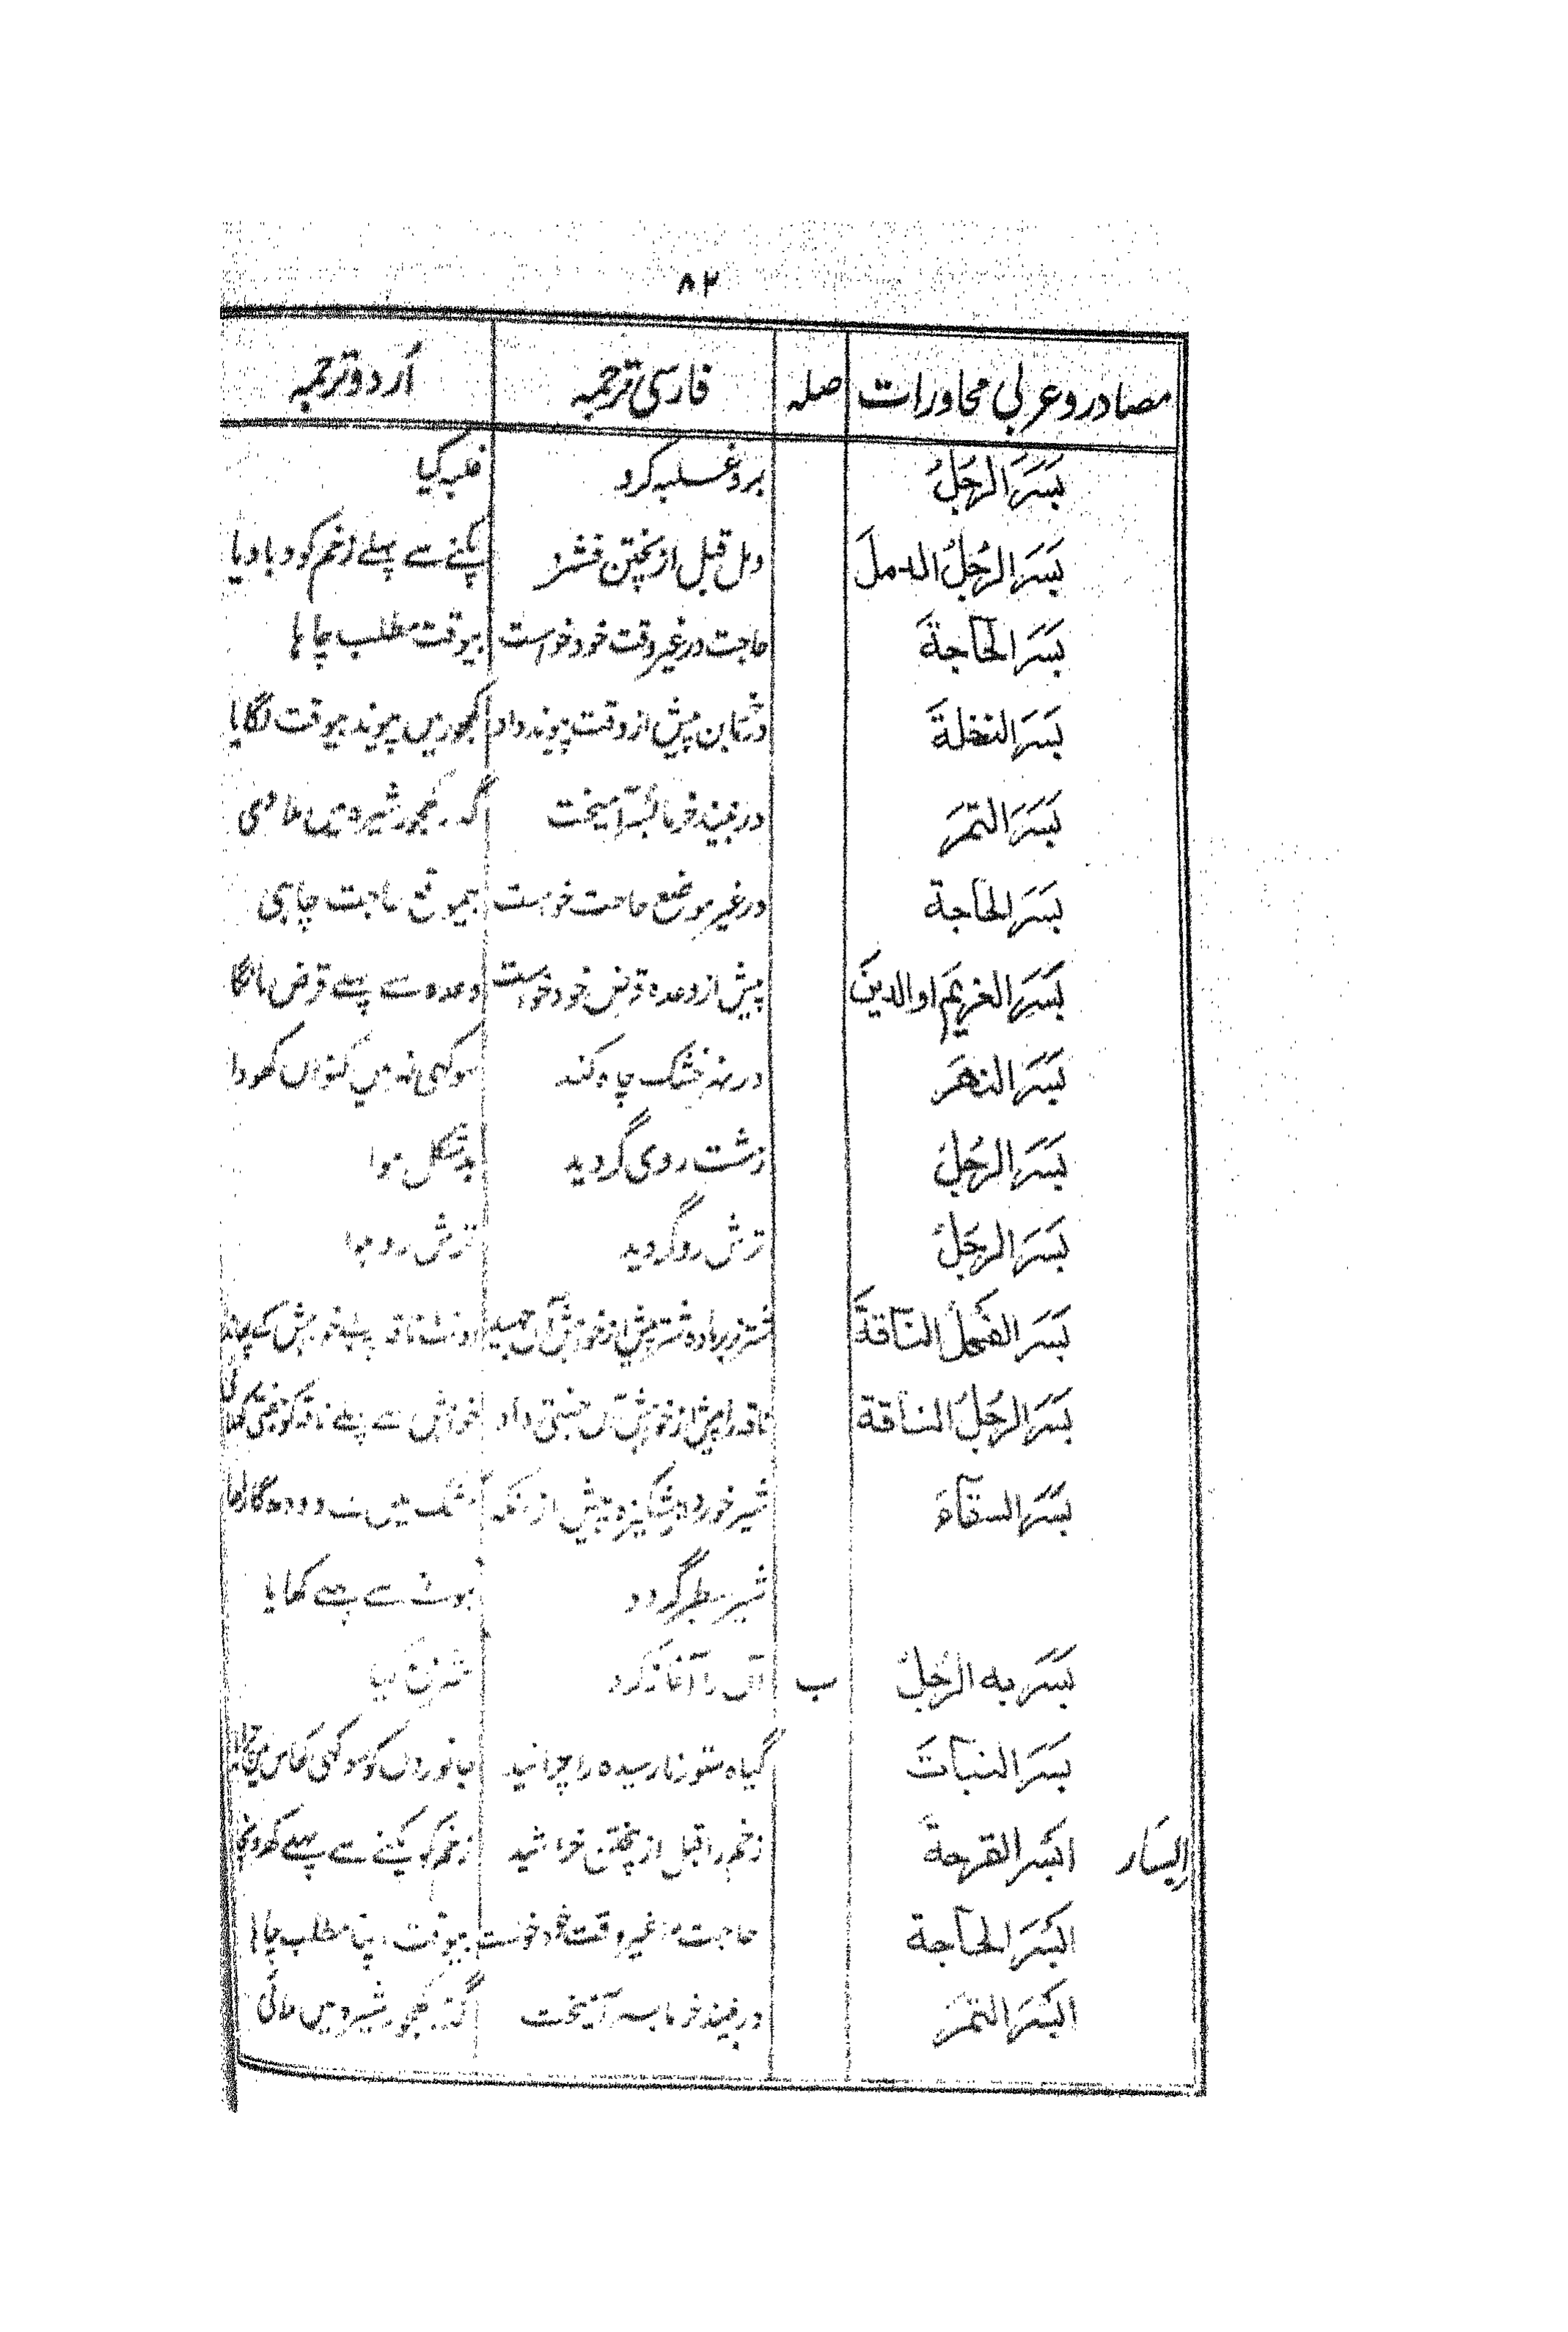 ۸۲
مصادر و عربی محاورات صلہ فارسی ترجمہ اُردو ترجمہ
بَسَرَ الرَجُلُ برو غلبہ کرد غلبہ کیا
بَسَرَ الرَجُلُ الدملَ دمل قبل از پختن فشرد پکنے سے پہلے زخم کو دبا دیا
بَسَرَ الحَاجةَ حاجت در غیر وقت خود خواست بیوقت مطلب چاہا
بَسَرَ النخلةَ پیش از وقت پیوند داد کھجور میں پیوند بیوقت لگایا
بَسَرَ التمرَ در نبیذ خرما آمیخت کھجور شیرہ میں
بَسَرَ الحَاجة در غیر موضع حاجت خواست بیموقع حاجت چاہی
بَسَرَ الغريمَ او الدينَ پیش از وعدہ قرض خود خواست وعدہ سے پہلے قرض مانگا
بَسَرَ النهرَ در نہر خشک چاہ کند سوکھی نہر میں کنواں کھودا
بَسَرَ الرَجُلُ زشت روی گردید بدشکل ہوا
بَسَرَ الرجلُ ترش رو گردید ترش رو ہوا
بَسَرَ الفحلُ النَاقةَ شتر نر بر مادہ شتر پیش از خواہش آں جہید اونٹ ناقہ پر
بَسَرَ الرجلُ الناقة ناقہ را پیش از خواہش آں جفتی داد خواہش سے پہلے ناقہ کو جفتی
بَسَرَ السقاءَ شیر خورد از مشکیزہ پیش از آنکہ مشک میں سے دودھ گاڑھا
شیر سطبر گردد ہونے سے پہلے کھایا
بَسَرَ به الرجلُ ب آں را آغاز کرد شروع کیا
بَسَرَ النباتَ گیاہ ستور نارسیدہ را چرانید جانوروں کو سوکھی گھاس میں
اِلبسَار ابسَر القرحةَ زخم را قبل از پختن خراشید زخم کو پکنے سے پہلے
ابسَرَ الحَاجة حاجت در غیر وقت خود خواست بیوقت اپنا مطلب چاہا
ابسَرَ التمرَ در نبیذ خرما آمیخت کھجور شیرہ میں ملائی